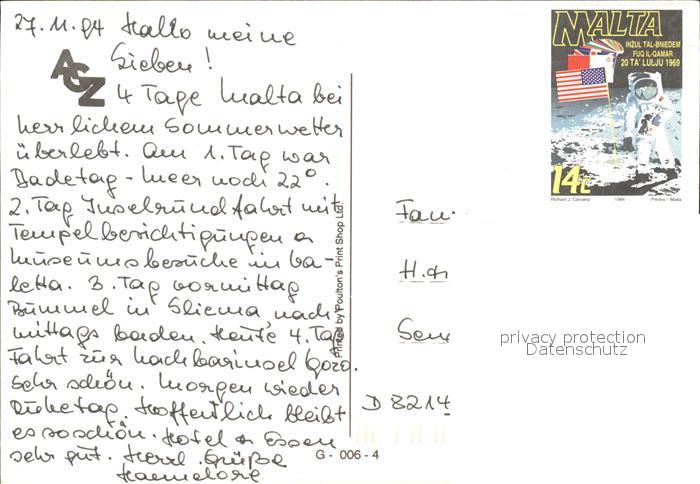 27.11.94 Hallo meine
Lieben!
AGZ
4 Tage Malta bei
herrlichem Sommerwetter
überlebt. Am 1. Tag war
Badetag - Meer noch 22°.
2. Tag Inselrundfahrt mit
Tempelbesichtigungen &
Museumsbesuche in Va-
letta. 3. Tag vormittag
Bummel in Sliema nach-
mittags baden. Heute 4. Tag
Fahrt zur Nachbarinsel Gozo.
Sehr schön. Morgen wieder
Ruhetag. Hoffentlich bleibt
es so schön. Hotel & Essen
sehr gut. Herzl. Grüße
Hannelore
Printed by Poulton's Print Shop Ltd.
G - 006 - 4
MALTA
INŻUL TAL-BNIEDEM
FUQ IL-QAMAR
20 TA' LULJU 1969
14c
Richard J. Caruana 1994 Printex - Malta
Fam.
privacy protection
Datenschutz
D 8214